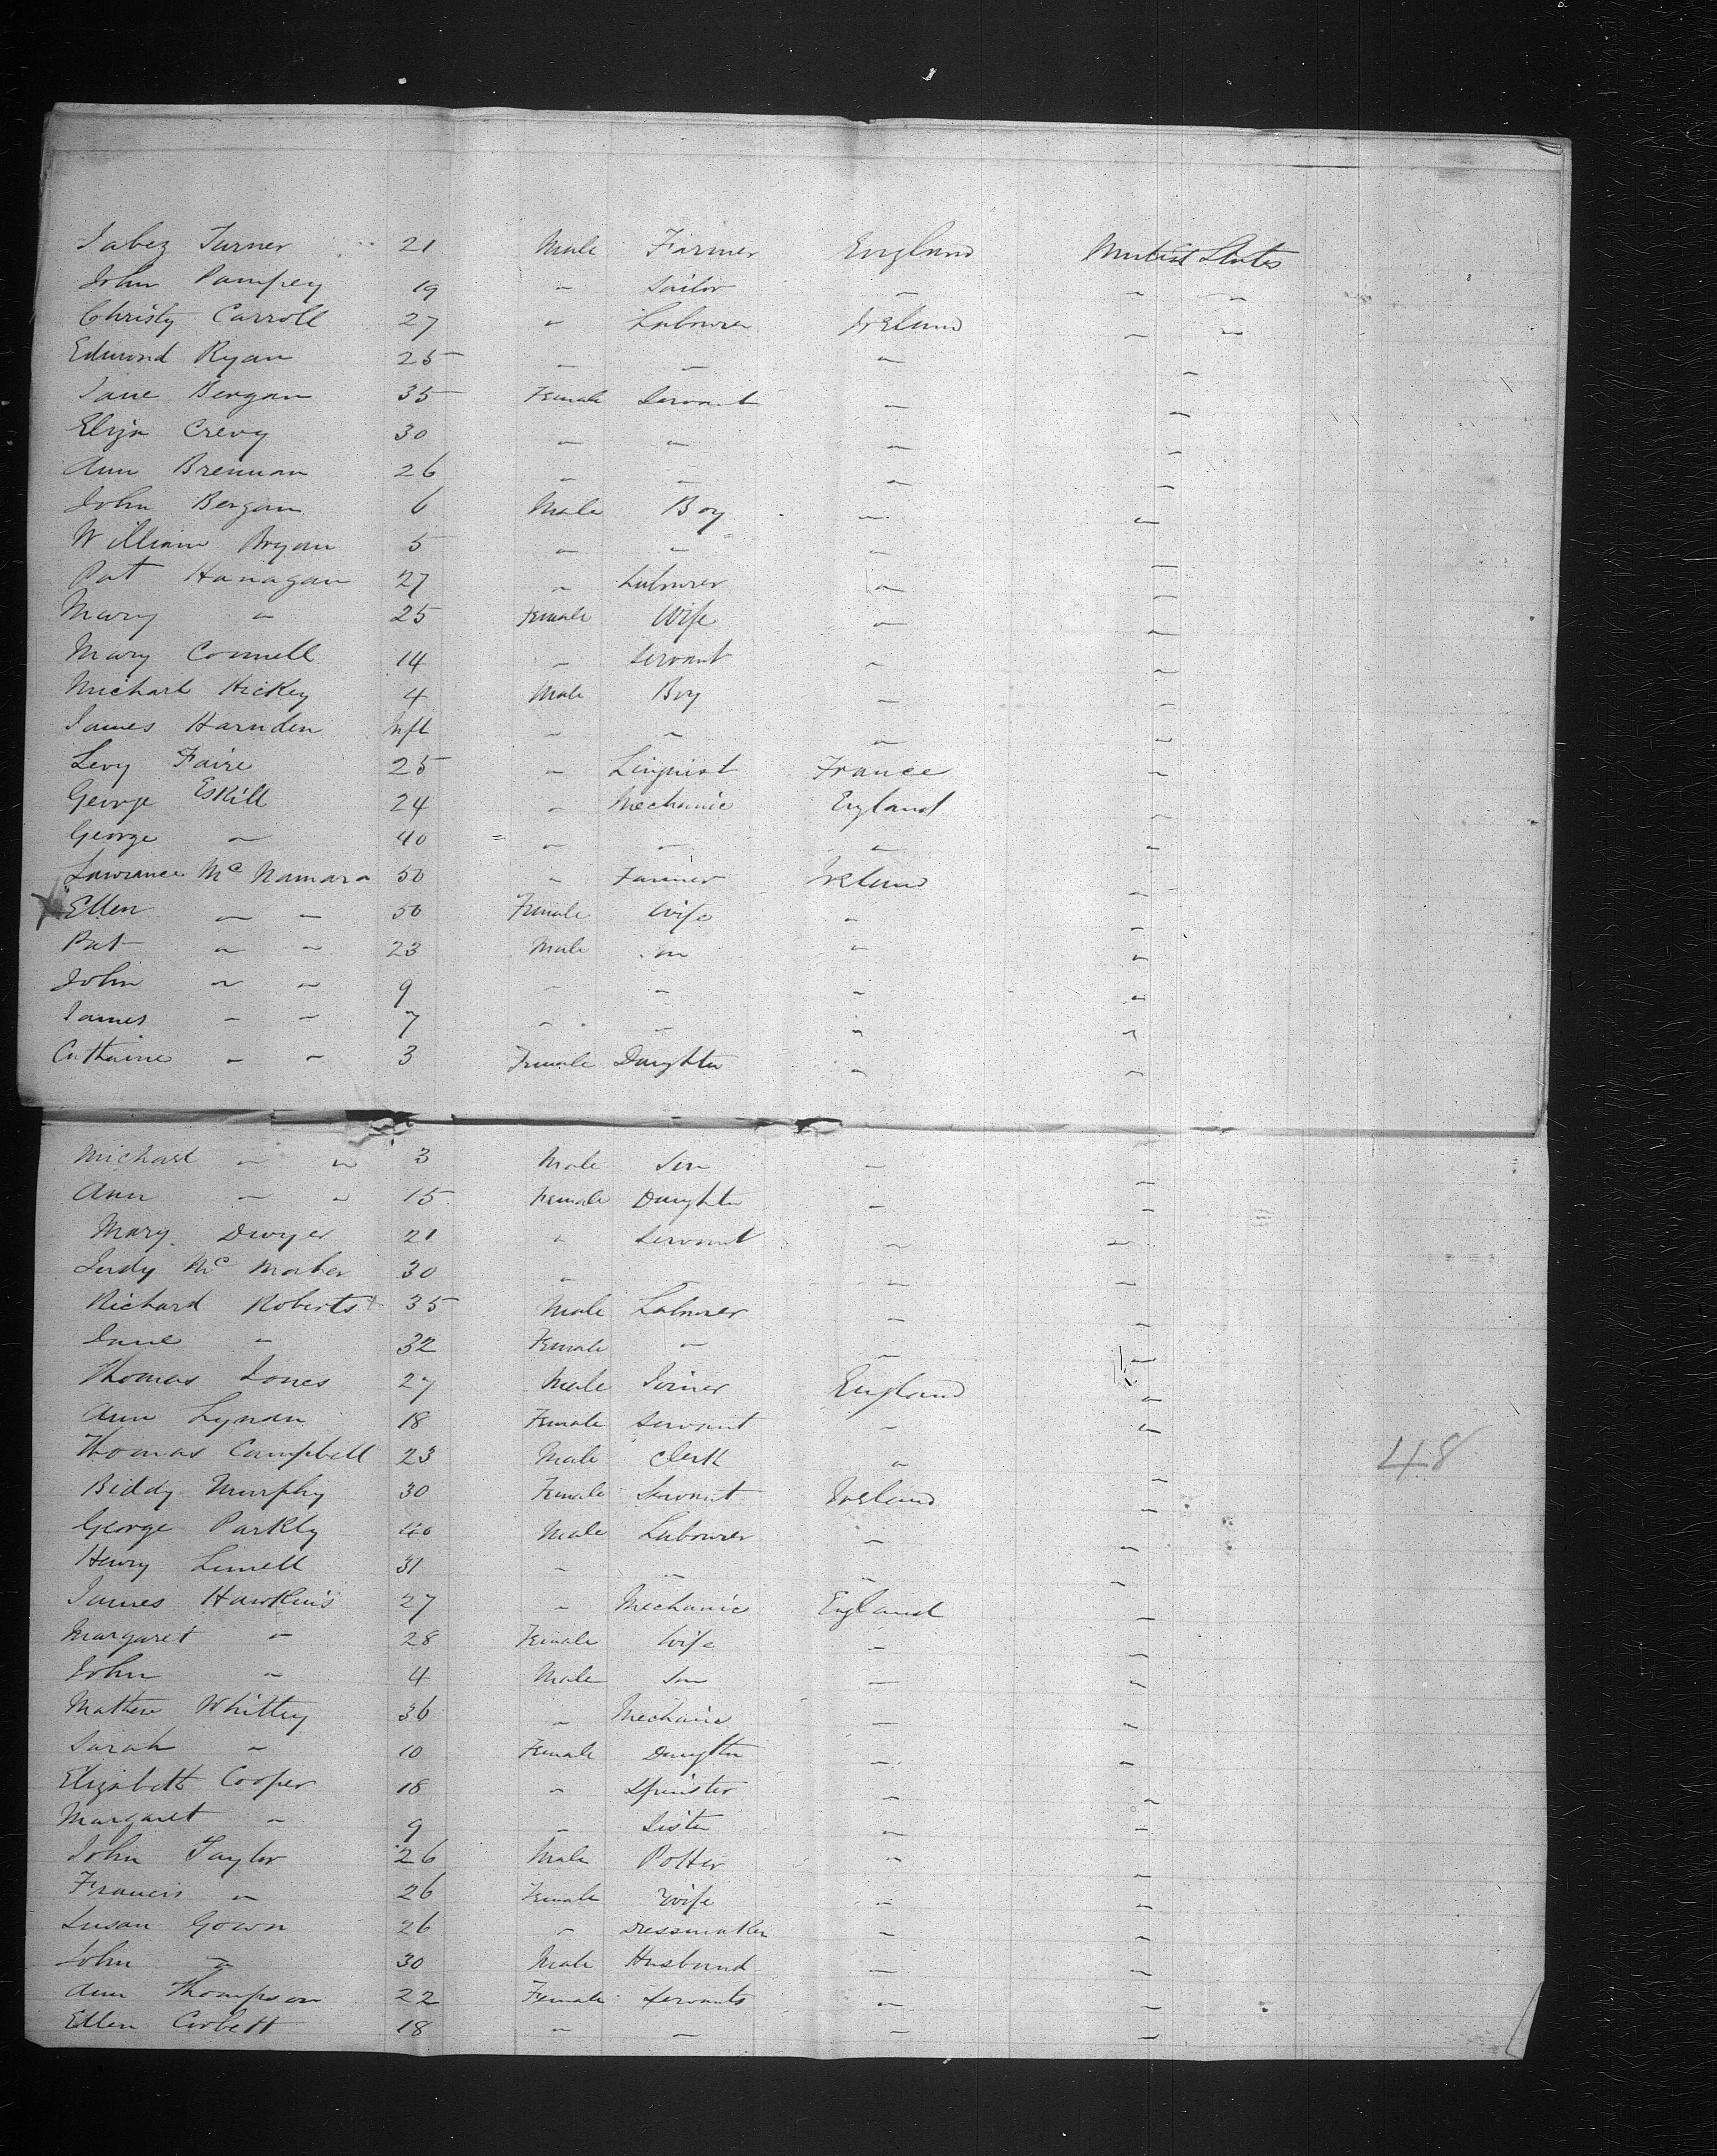 Jabez Turner 21 Male Farmer England United States
John Pampey 19 " Sailor " " "
Christy Carroll 27 " Labourer Ireland " "
Edmond Ryan 25 " " " "
Jane Bergan 35 Female Servant " "
Eliza Crevy 30 " " " "
Ann Brennan 26 " " " "
John Bergan 6 Male Boy " "
William Bryan 5 " " " "
Pat Hanagan 27 " Labourer " "
Mary " 25 Female Wife " "
Mary Connell 14 " Servant " "
Michael Hickey 4 Male Boy " "
James Harnden Inft " " " "
Levy Faire 25 " Linquist France "
George Eskill 24 " Mechanic England "
George " 40 " " " "
Lawrance Mc Namara 50 " Farmer Ireland "
Ellen " " 50 Female Wife " "
Pat " " 23 Male son " "
John " " 9 " " " "
James " " 7 " " " "
Catharine " " 3 Female Daughter " "
Michael " " 3 Male Son " "
Ann " " 15 Female Daughter " "
Mary Dwyer 21 " Servant " "
Judy Mc 30 " " "
Richard Roberts 35 Male Labourer " "
Jane " 32 Female " " "
Thomas Jones 27 Male Joiner England "
Ann Lynan 18 Female Servant " "
Thomas Campbell 23 Male Clerk " "
Biddy Murphy 30 Female Servant Ireland "
George Parkly 40 Male Labourer " "
Henry 31 " " " "
James Hawkins 27 " Mechanic England "
Margaret " 28 Female Wife " "
John " 4 Male Son " "
Mathew Whittey 36 " Mechanic " "
Sarah " 10 Female Daughter " "
Elizabeth Cooper 18 " Spinster " "
Margaret " 9 " Sister " "
John Taylor 26 Male Potter " "
Francis " 26 Female Wife " "
Susan Gown 26 " Dressmaker " "
John " 30 Male Husband " "
Ann Thompson 22 Female Servants " "
Ellen Corbett 18 " " " "
48